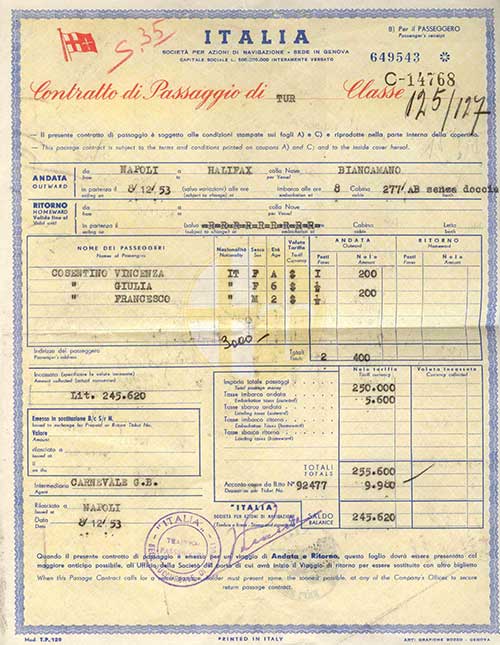 S.35
ITALIA
SOCIETÀ PER AZIONI DI NAVIGAZIONE - SEDE IN GENOVA
CAPITALE SOCIALE L. 500.000.000 INTERAMENTE VERSATO
B) Per il PASSEGGERO
Passenger's receipt
649543
C-14768
Contratto di Passaggio di TUR Classe 125/127
— Il presente contratto di passaggio è soggetto alle condizioni stampate sui fogli A) e C) e riprodotte nella parte interna della copertina.
— This passage contract is subject to the terms and conditions printed on coupons A) and C) and to the inside cover hereof.
ANDATA OUTWARD
da NAPOLI a HALIFAX colla Nave BIANCAMANO
from to per Vessel
in partenza il 8/12/53 (salvo variazioni) alle ore Imbarco alle ore 8 Cabina 277/AB senza doccia
sailing on
RITORNO HOMEWARD
Valida fino al
Valid until
da a colla Nave
from to per Vessel
in partenza il (salvo Cabina Letto
sailing on (subject to change) at embarkation at Cabin berth
NOME DEI PASSEGGERI Nazionalità Sesso Età Valuta Tariffa ANDATA RITORNO
Names of Passengers Nationality Sex Age Tariff Currency Outward Homeward
Posti Nolo Posti Nolo
Fares Amount Fares Amount
COSENTINO VINCENZA IT F A $ I 200
" GIULIA " F 6 $ ½
" FRANCESCO " M 2 $ ½ 200
3000
Indirizzo del passeggero Totali 2 400
Passenger's address Totals
Incassato (specificare la valuta incassata)
Amount collected (actual currencies)
Lit. 245.620
Nolo tariffa Valuta incassata
Tariff money Currency collected
Importo totale passaggi 250.000
Total passage money
Tasse imbarco andata 5.600
Embarkation Taxes (outward)
Tasse sbarco andata
Landing taxes (outward)
Tasse imbarco ritorno
Embarkation Taxes (homeward)
Tasse sbarco ritorno
Landing taxes (homeward)
Emesso in sostituzione B/c S/s N.
Issued in exchange for Prepaid or Return Ticket No.
Valore
Amount
rilasciato a
Issued at
il
on
TOTALI 255.600
TOTALS
Acconto come da B.tto N° 92477 9.980
Intermediario CARNEVALE G.B.
Agent
Rilasciato a NAPOLI
Issued at
Data 8/12/53
Date
"ITALIA"
SOCIETÀ PER AZIONI DI NAVIGAZIONE
SALDO 245.620
BALANCE
"ITALIA"
Quando il presente contratto di passaggio è emesso per un viaggio di Andata e Ritorno, questo foglio dovrà essere presentato col
maggiore anticipo possibile, all'Ufficio della Società del porto di cui avrà inizio il Viaggio di ritorno per essere sostituito con altro biglietto
When this Passage Contract calls for a holder must present same, the soonest possible, at any of the Company's Offices to secure
return passage contract.
Mod. T.P. 120
PRINTED IN ITALY
ARTI GRAFICHE - GENOVA